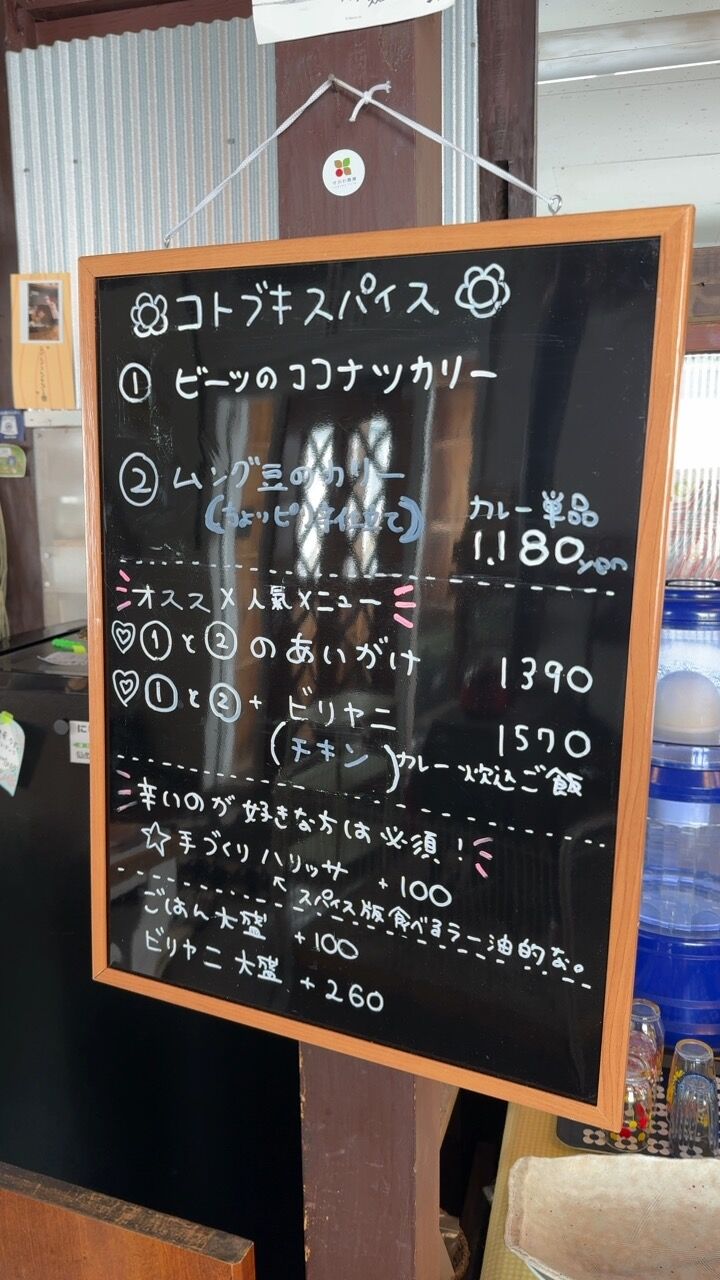 コトブキスパイス
① ビーツのココナツカリー
② ムング豆のカリー
(ちょッピリ辛仕立て)
カレー単品
1.180yen
オススメ人氣メニュー
♡①と②のあいがけ 1390
♡①と②+ ビリヤニ 1570
(チキン) カレー炊込ご飯
辛いのが好きな方は必須!
☆手づくりハリッサ +100
↖スパイス版食べるラー油的な。
ごはん大盛 +100
ビリヤニ大盛 +260